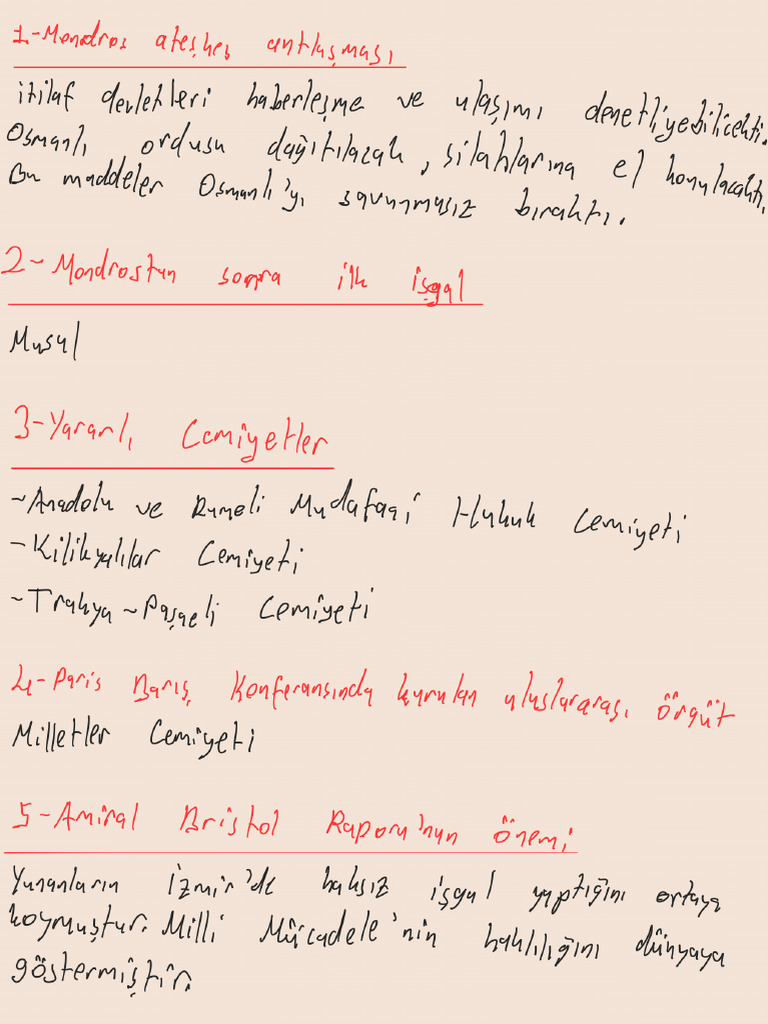 1-Mondros ateşkes antlaşması
itilaf devletleri haberleşme ve ulaşımı denetliyebilicekti.
Osmanlı ordusu dağıtılacak, silahlarına el konulacaktı.
Bu maddeler Osmanlı'yı savunmasız bıraktı.
2-Mondrostan sonra ilk işgal
Musul
3-Yararlı Cemiyetler
-Anadolu ve Rumeli Mudafaai Hukuk Cemiyeti
-Kilikyalılar Cemiyeti
-Trakya-Paşaeli Cemiyeti
4-Paris Barış Konferansında kurulan uluslararası örgüt
Milletler Cemiyeti
5-Amiral Bristol Raporu'nun önemi
Yunanların İzmir'de haksız işgal yaptığını ortaya
koymuştur. Milli Mücadele'nin haklılığını dünyaya
göstermiştir.